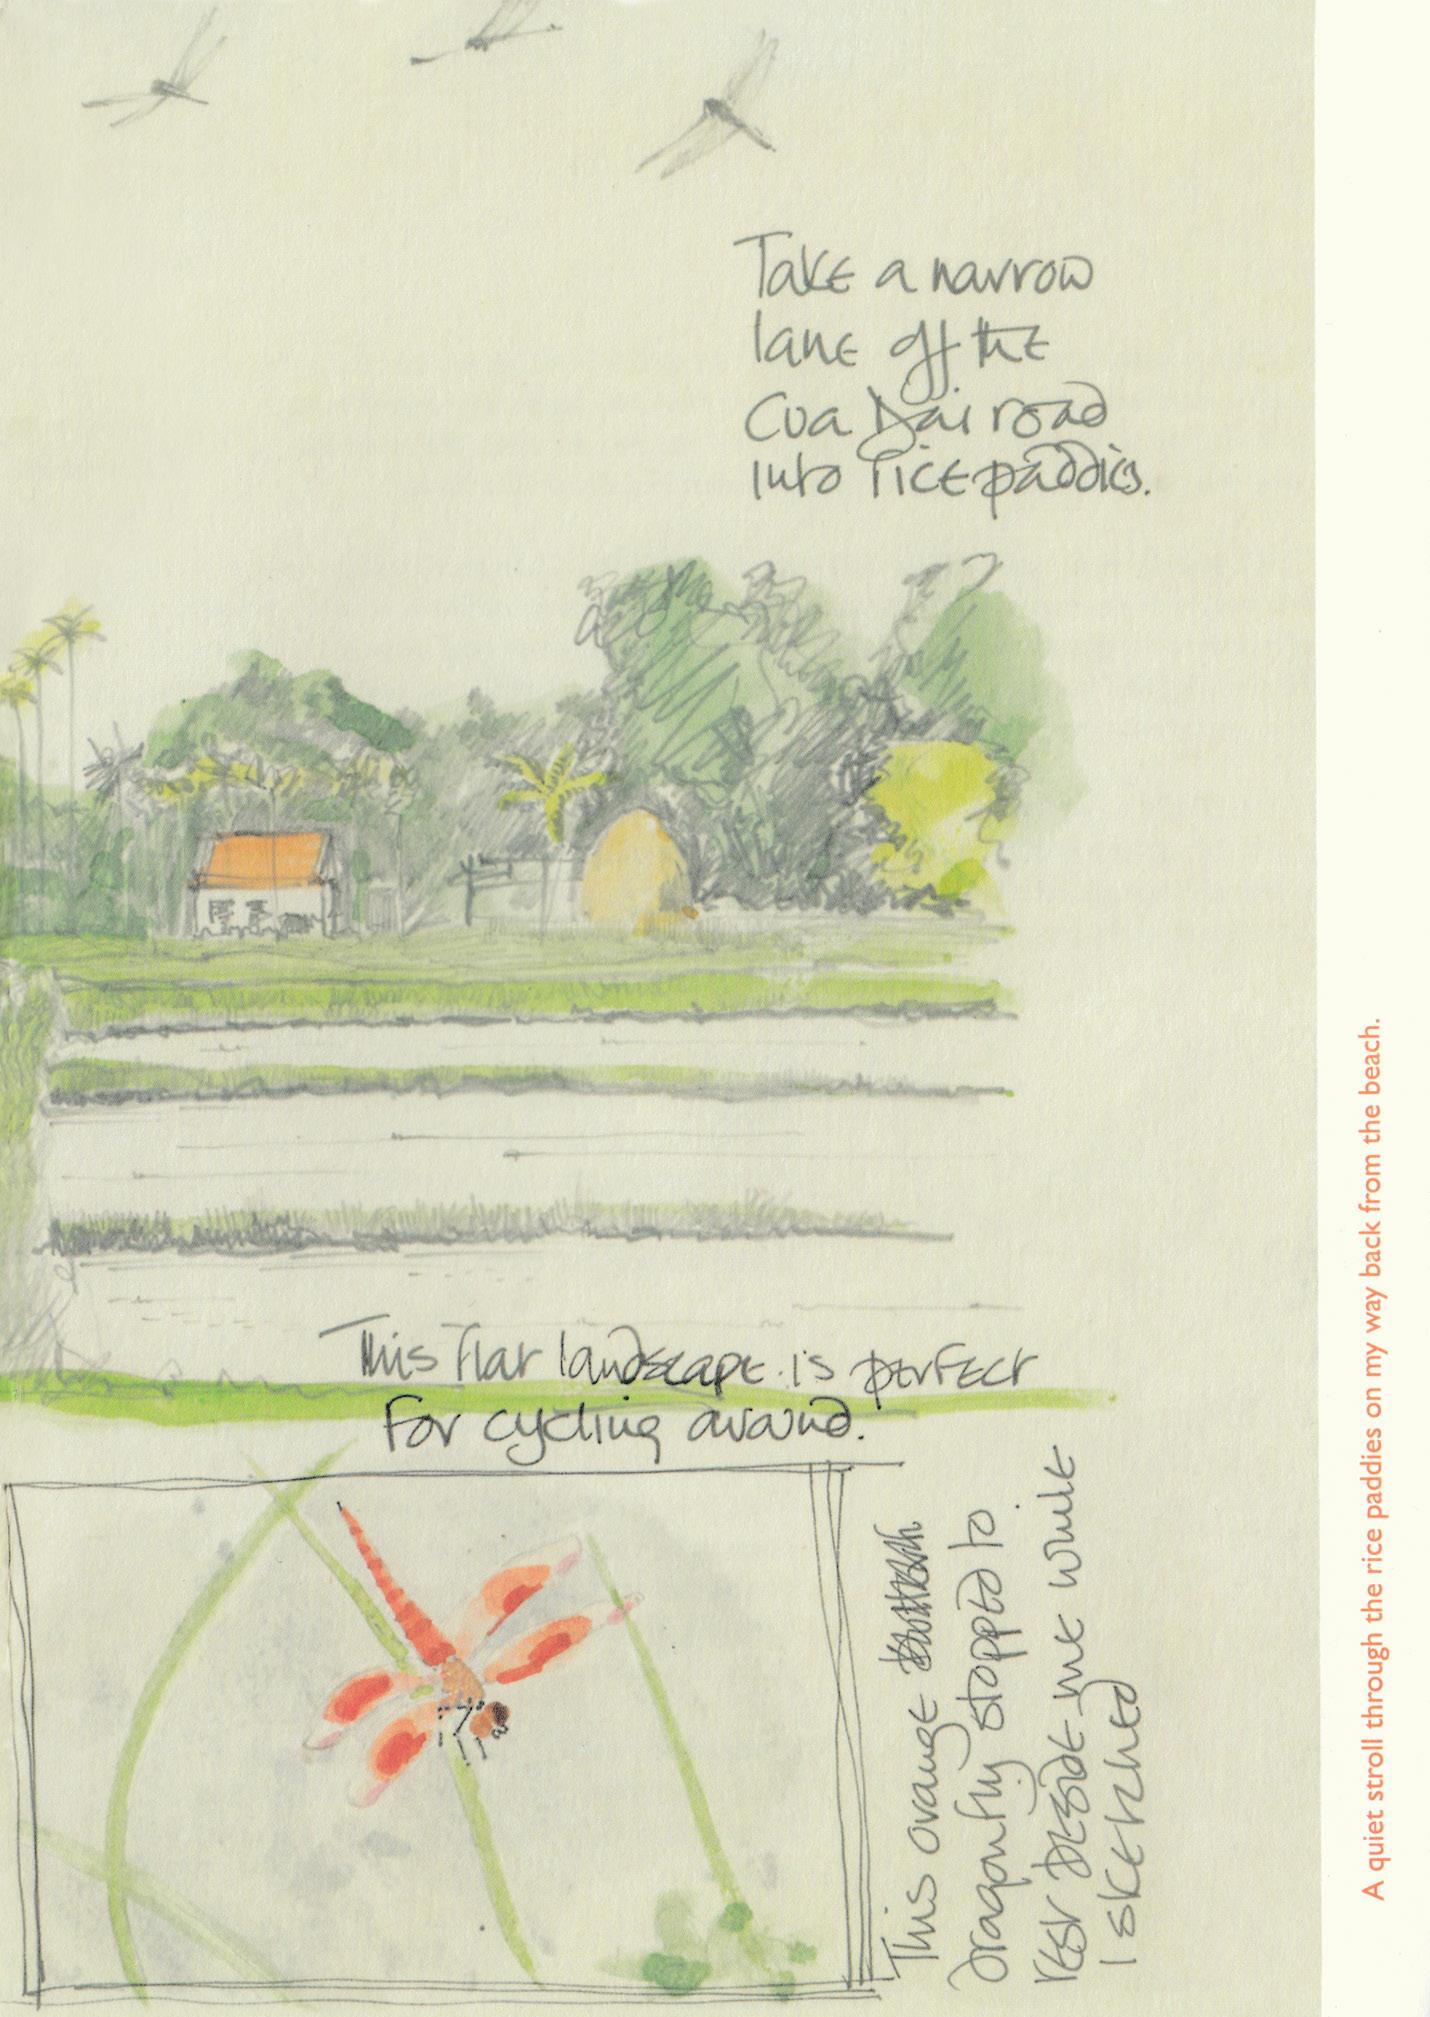 Take a narrow
lane off the
Cua Dai road
into rice paddies.
This flat landscape is perfect
for cycling around.
This orange
dragonfly stopped to
rest beside me while
I sketched
A quiet stroll through the rice paddies on my way back from the beach.